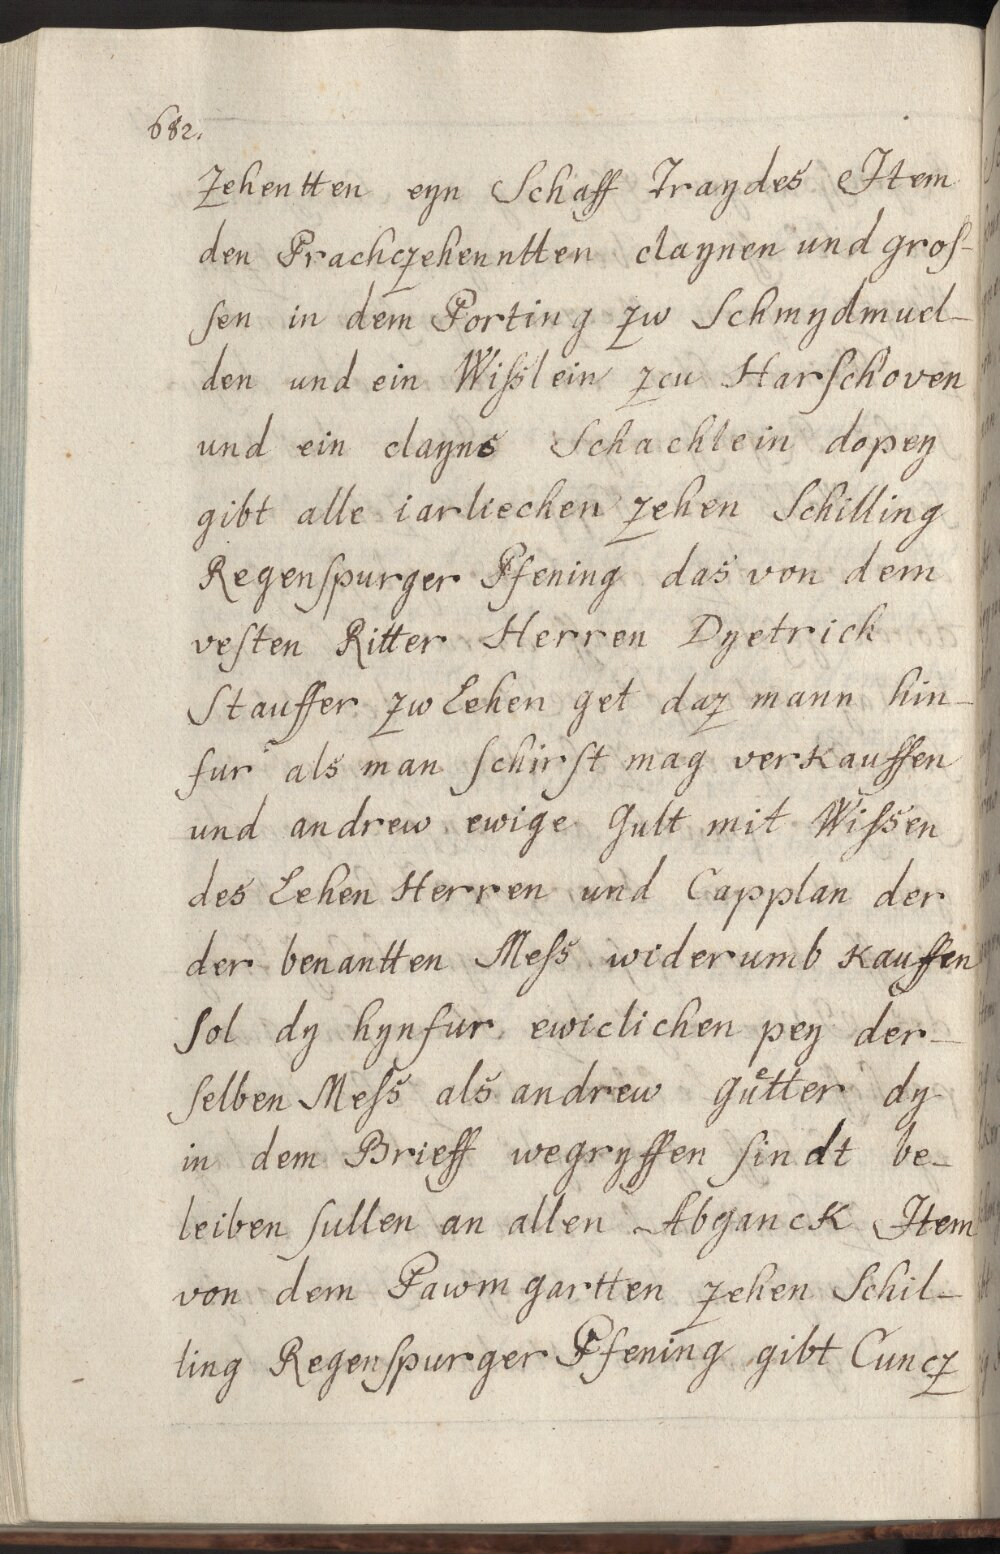 682.
zehentten eyn Schaff Traydes Item
den Prachczehenntten claynen und gros-
sen in dem Porting zw Schmydmuel-
den und ein Wißlein zcu Harschoven
und ein clayns Schachlein dopey
gibt alle iarliechen zehen Schilling
Regenspurger Pfening das von dem
vesten Ritter Herren Dyetrick
Stauffer zw Lehen get daz mann hin-
fur als man schirst mag verkauffen
und andrew ewige Gult mit Wissen
des Lehen Herren und Capplan der
der benantten Mess widerumb kauffen
sol dy hynfur ewiclichen pey der-
selben Mess als andrew guͤtter dy
in dem Brieff wegryffen sindt be-
leiben sullen an allen Abganck Item
von dem Pawmgartten zehen Schil-
ling Regenspurger Pfening gibt Cuncz